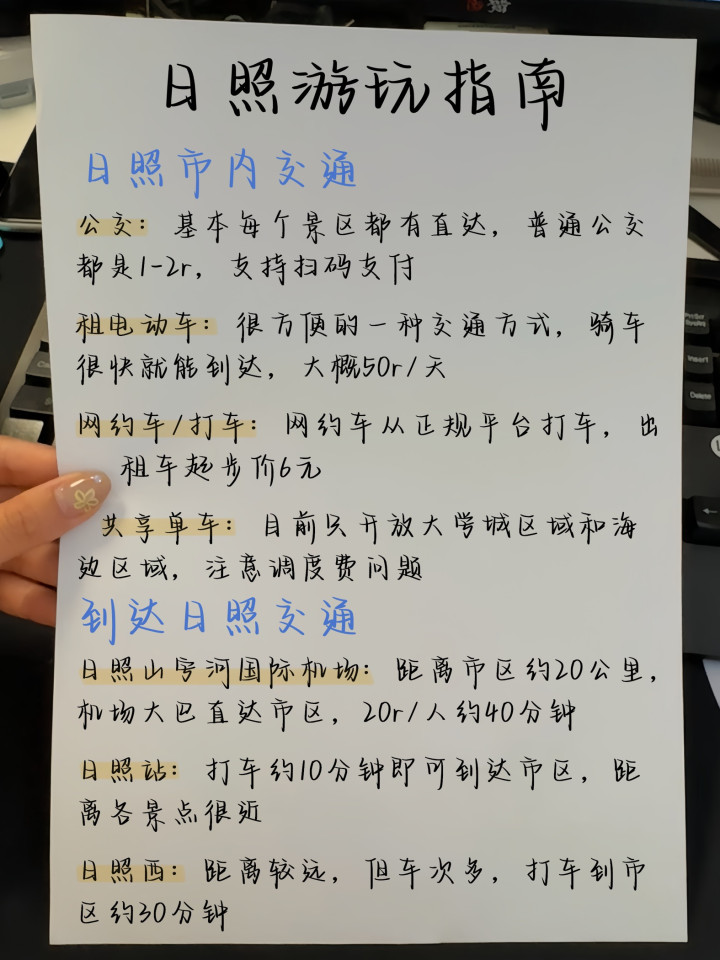 日照游玩指南
日照市内交通
公交：基本每个景区都有直达，普通公交
都是1-2r，支持扫码支付
租电动车：很方便的一种交通方式，骑车
很快就能到达，大概50r/天
网约车/打车：网约车从正规平台打车，出
租车起步价6元
共享单车：目前只开放大学城区域和海
边区域，注意调度费问题
到达日照交通
日照山字河国际机场：距离市区约20公里，
机场大巴直达市区，20r/人约40分钟
日照站：打车约10分钟即可到达市区，距
离各景点很近
日照西：距离较远，但车次多，打车到市
区约30分钟
Insert
Delete